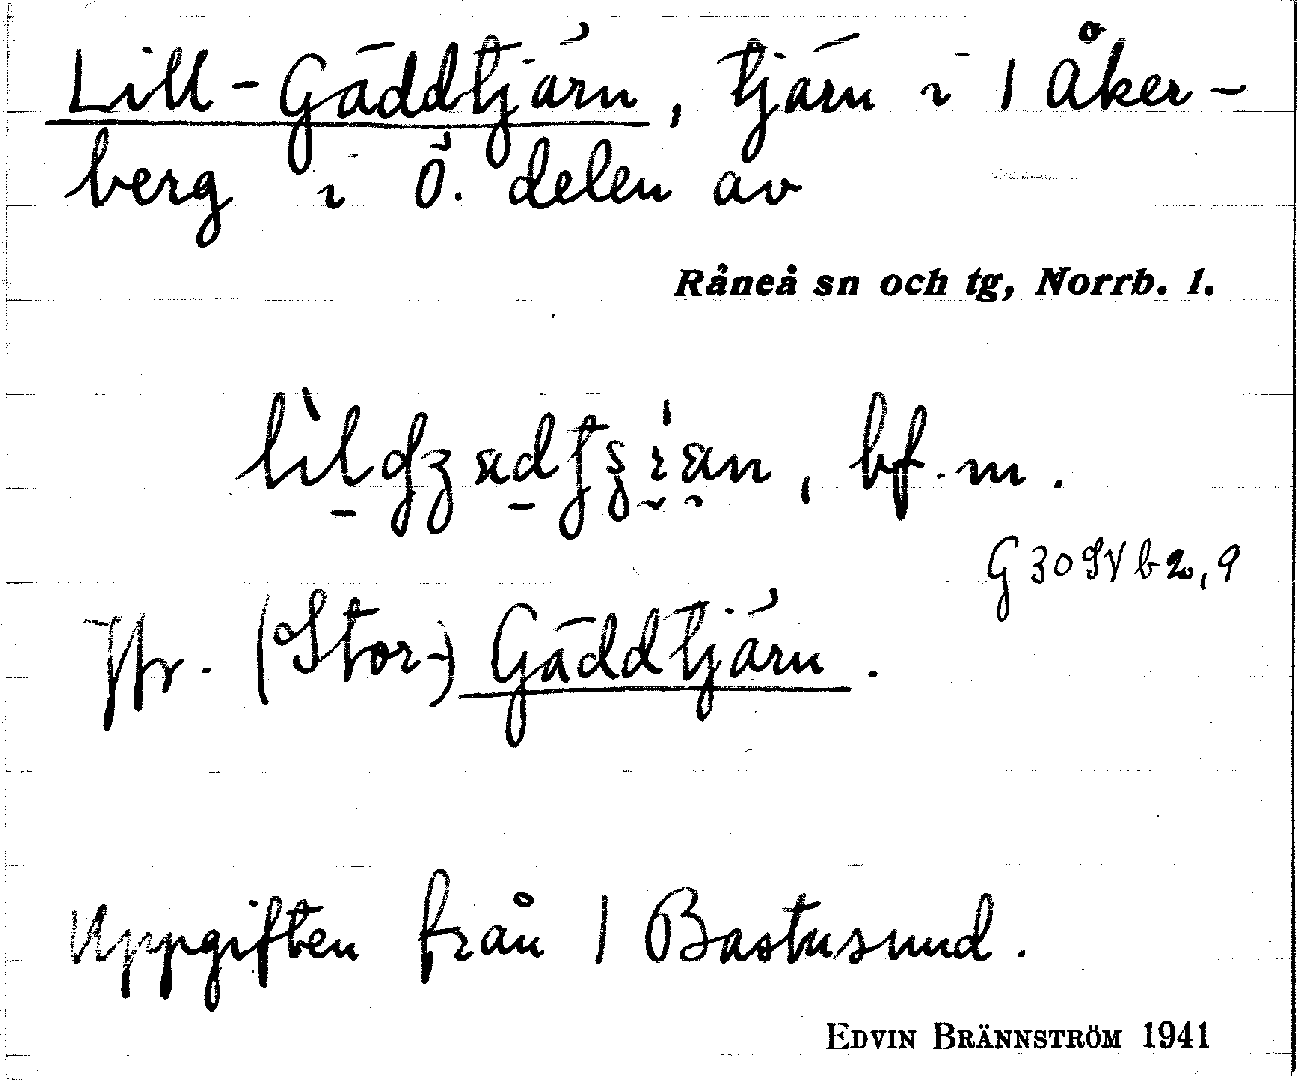 Lill-Gäddtjärn, tjärn i 1 Åker-
berg i Ö. delen av
Råneå sn och tg, Norrb. l.
bf. m.
G 30 SV b 2, 9
Jfr. (Stor-) Gäddtjärn.
Uppgiften från 1 Bastusund.
EDVIN BRÄNNSTRÖM 1941